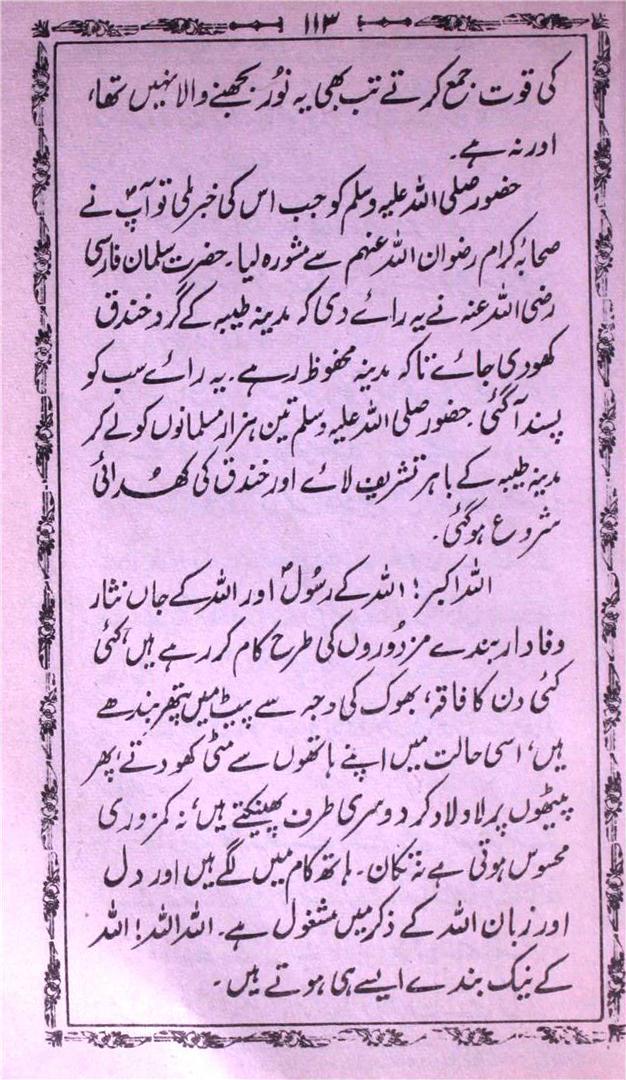 ۱۱۳
کی قوت جمع کرتے تب بھی یہ نور بجھنے والا نہیں تھا،
اور نہ ہے۔
حضور صلی اللہ علیہ وسلم کو جب اس کی خبر ملی تو آپؐ نے
صحابۂ کرام رضوان اللہ عنہم سے مشورہ لیا۔ حضرت سلمان فارسی
رضی اللہ عنہ نے یہ رائے دی کہ مدینہ طیبہ کے گرد خندق
کھودی جائے تاکہ مدینہ محفوظ رہے۔ یہ رائے سب کو
پسند آگئی۔ حضور صلی اللہ علیہ وسلم تین ہزار مسلمانوں کو لے کر
مدینہ طیبہ کے باہر تشریف لائے اور خندق کی کھدائی
شروع ہوگئی۔
اللہ اکبر! اللہ کے رسُولؐ اور اللہ کے جاں نثار
وفادار بندے مزدُوروں کی طرح کام کر رہے ہیں، کئی
کئی دن کا فاقہ، بھوک کی وجہ سے پیٹ میں پتھر بندھے
ہیں، اسی حالت میں اپنے ہاتھوں سے مٹی کھودتے، پھر
پیٹھوں پر لاد لاد کر دوسری طرف پھینکتے ہیں، نہ کمزوری
محسوس ہوتی ہے نہ تکان۔ ہاتھ کام میں لگے ہیں اور دل
اور زبان اللہ کے ذکر میں مشغول ہے۔ اللہ اللہ! اللہ
کے نیک بندے ایسے ہی ہوتے ہیں۔